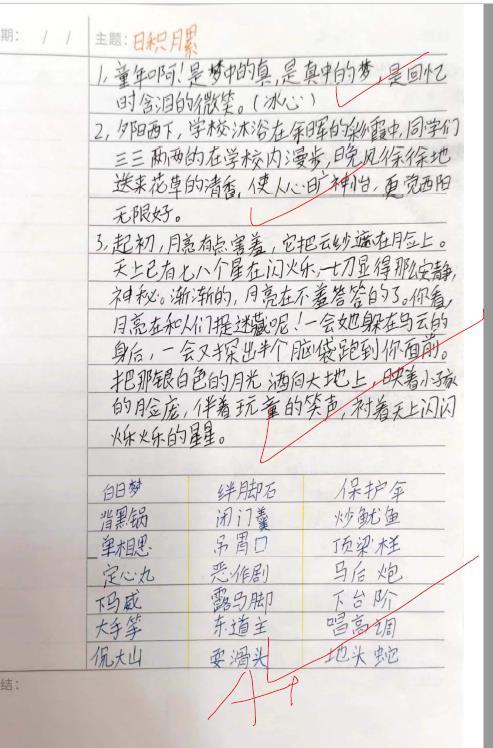 期： / / 主题：日积月累
1，童年啊阿！是梦中的真，是真中的梦，是回忆
时含泪的微笑。（冰心）
2，夕阳西下，学校沐浴在余晖的彩霞中，同学们
三三两两的在学校内漫步，晚风徐徐地
送来花草的清香，使人心旷神怡，更觉西阳
无限好。
3，起初，月亮有点害羞，它把云纱遮在月佥上。
天上已有七八个星在闪火乐，一切显得那么安静，
神秘。渐渐的，月亮在不羞答答的了。你看，
月亮在和人们捉迷藏呢！一会她躲在乌云的
身后，一会又探出半个脑袋跑到你面前。
把那银白色的月光洒向大地上，映着小孩
的月佥庞，伴着玩童的笑声，衬着天上闪闪
烁烁的星星。
白日梦 绊脚石 保护伞
背黑锅 闭门羹 炒鱿鱼
单相思 吊胃口 顶梁柱
定心丸 恶作剧 马后炮
下马威 露马脚 下台阶
大手笔 东道主 唱高调
侃大山 耍滑头 地头蛇
结：
A++